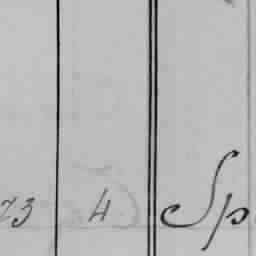 73 4 Sp